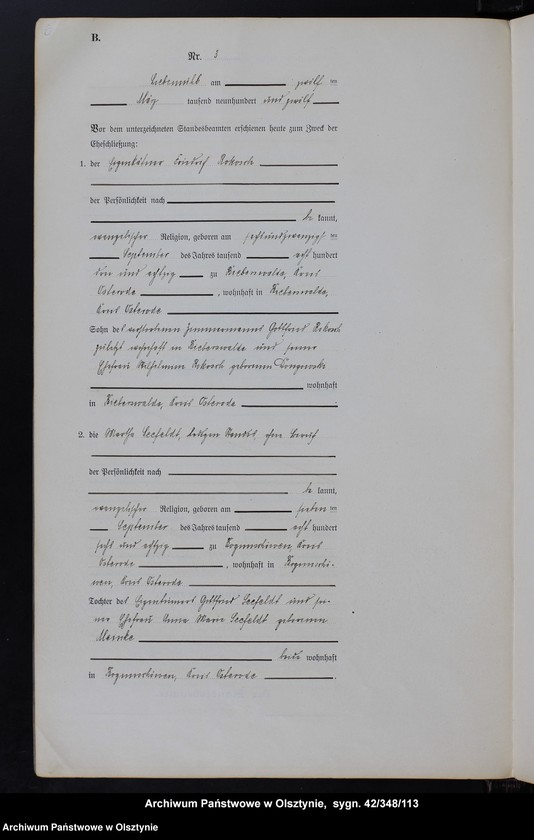 B.
Nr. 3
Liebemühl am zwölf ten
März tausend neunhundert und zwölf
Vor dem unterzeichneten Standesbeamten erschienen heute zum Zweck der
Eheschließung:
1. der Friedrich
der Persönlichkeit nach
be kannt,
evangelischer Religion, geboren am sechsundzwanzigst en
September des Jahres tausend acht hundert
drei und achtzig zu Bieberswalde, Kreis
Osterode, wohnhaft in Bieberswalde,
Kreis Osterode
Sohn des verstorbenen Zimmermanns Gottfried
zuletzt wohnhaft in Bieberswalde und seiner
Ehefrau Wilhelmine geborenen
wohnhaft
in Bieberswalde, Kreis Osterode.
2. die Martha Seefeldt, ledigen Standes, ohne Beruf
der Persönlichkeit nach
be kannt,
evangelischer Religion, geboren am sieben ten
September des Jahres tausend acht hundert
sechs und achtzig zu Kreis
Osterode, wohnhaft in
Kreis Osterode
Tochter des Eigentümers Gottfried Seefeldt und sei-
ner Ehefrau Anna Marie Seefeldt geborenen
beide wohnhaft
in Kreis Osterode.
Archiwum Państwowe w Olsztynie, sygn. 42/348/113
Archiwum Państwowe w Olsztynie